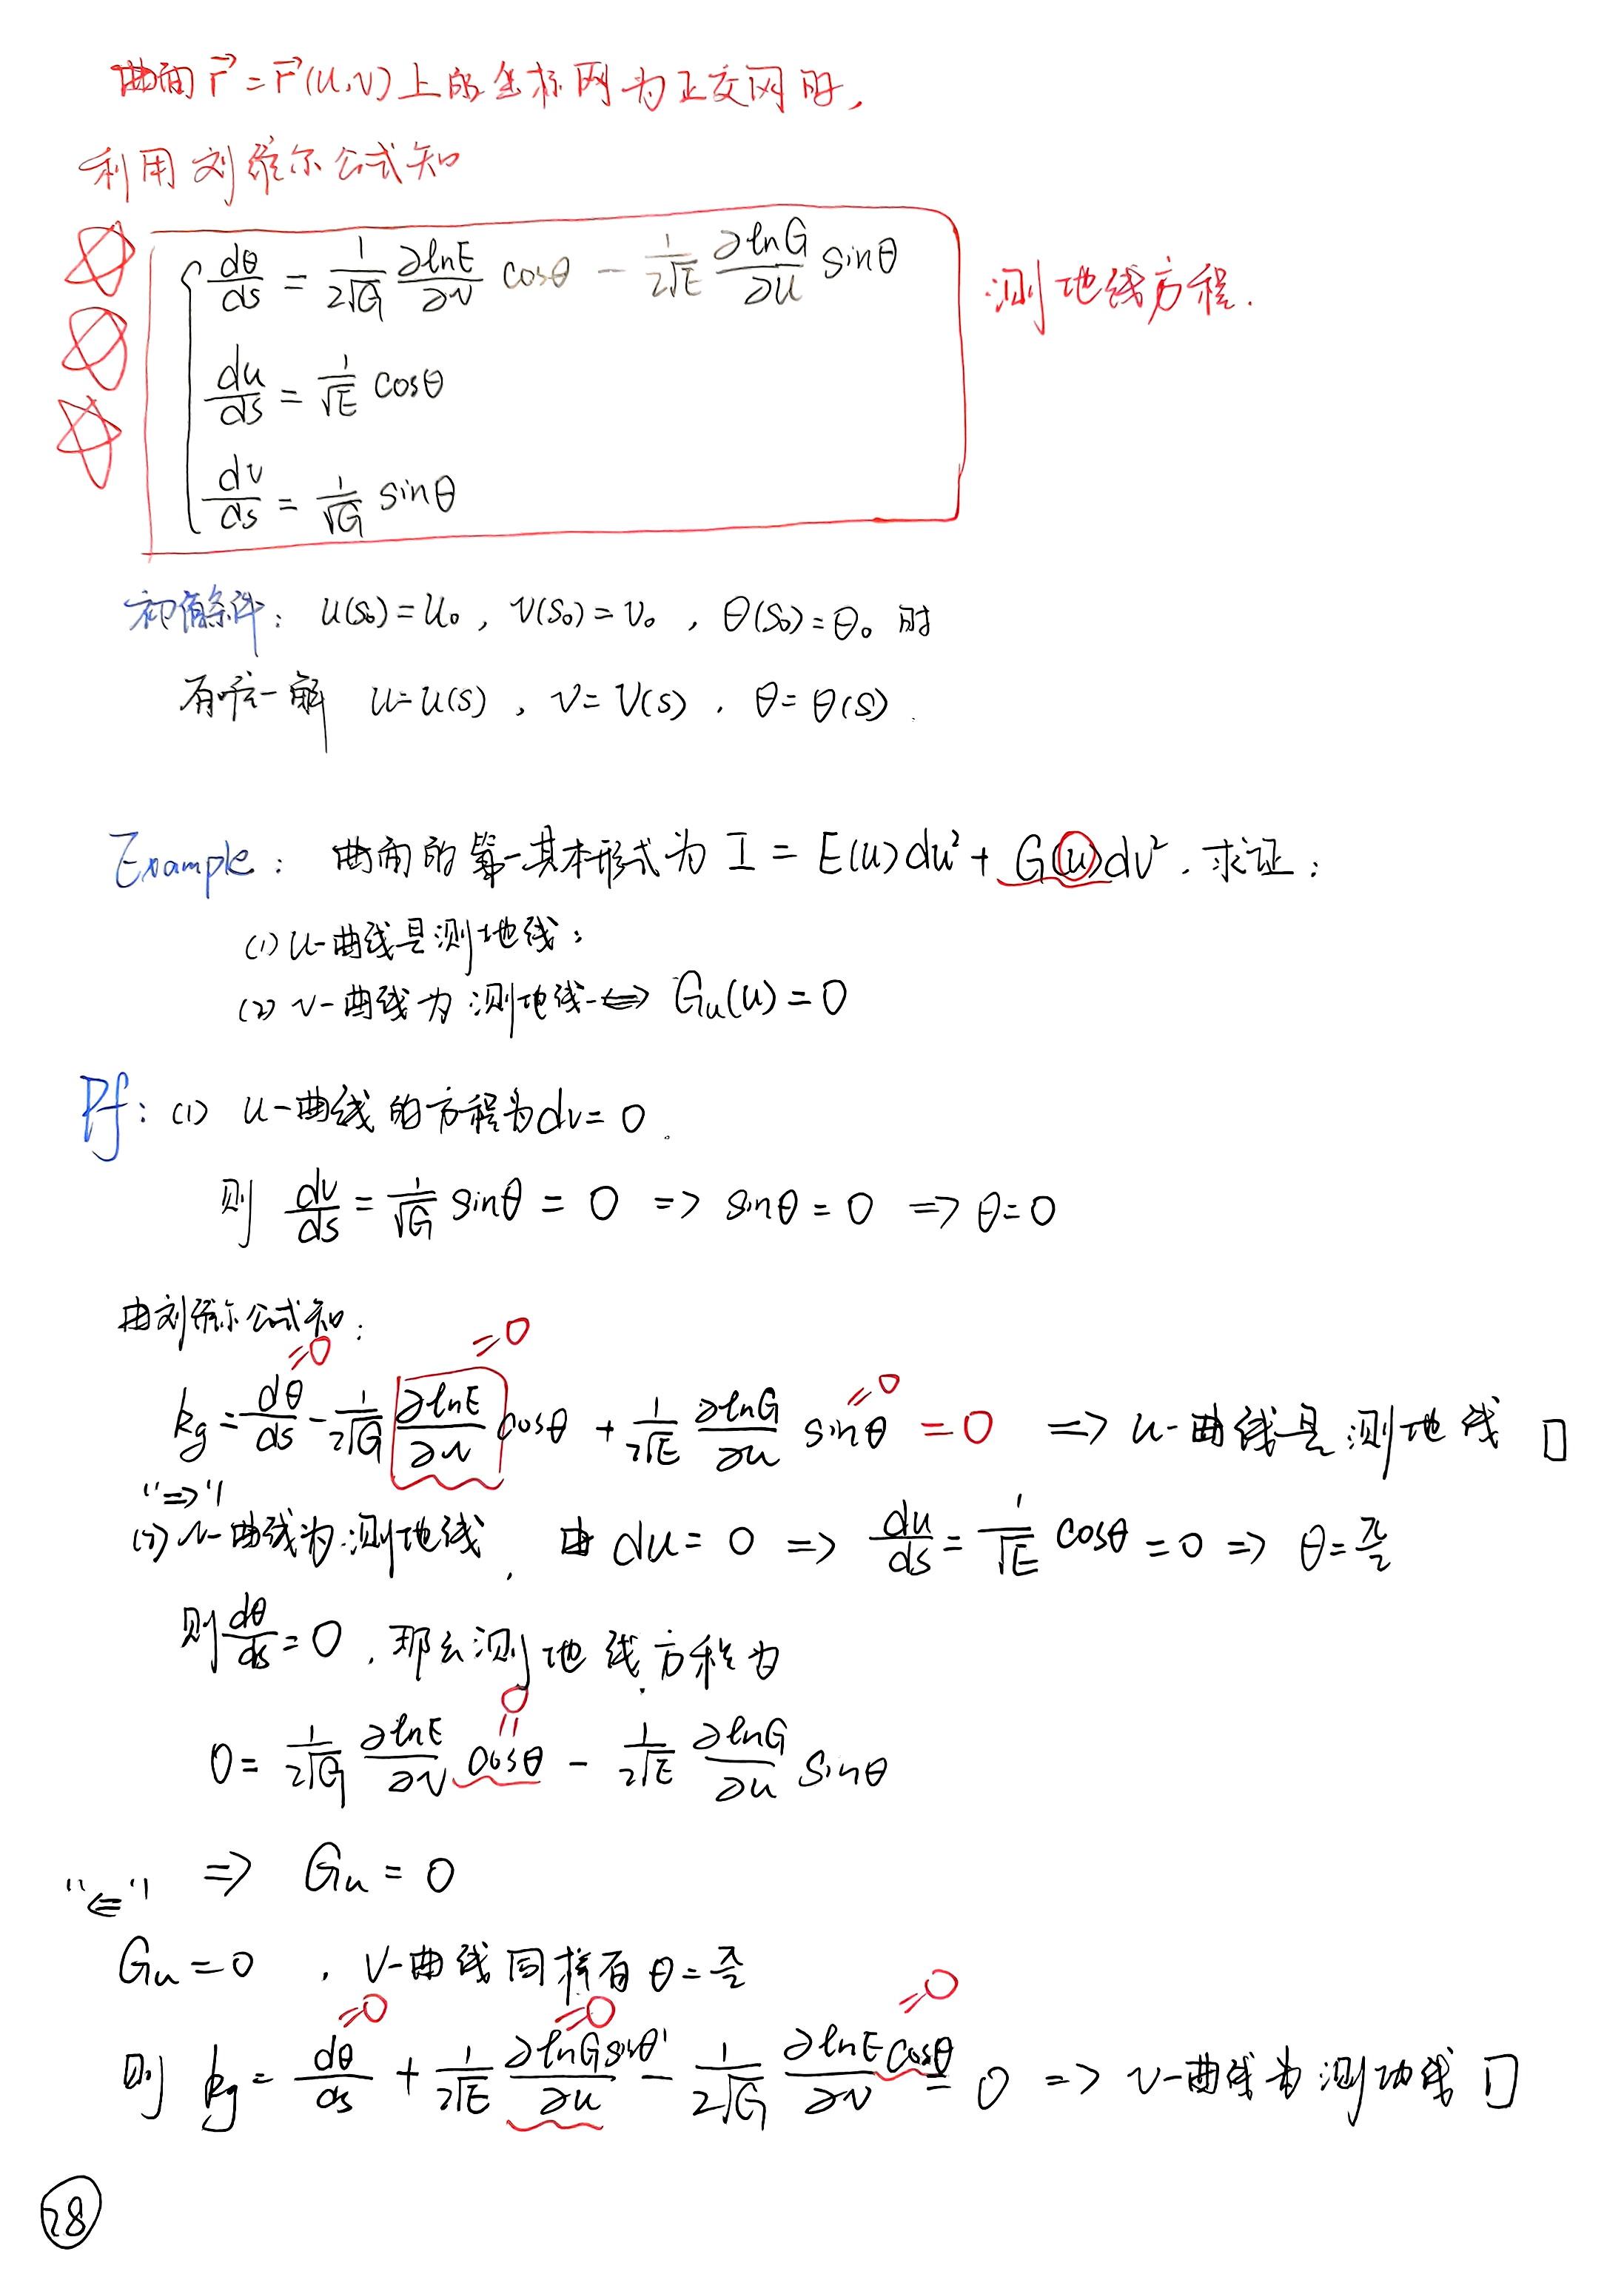 曲面 r⃗ = r⃗(u,v) 上的坐标网为正交网时,
利用刘维尔公式知
dθ/ds = 1/(2√G) ∂lnE/∂v cosθ − 1/(2√E) ∂lnG/∂u sinθ
测地线方程.
du/ds = 1/√E cosθ
dv/ds = 1/√G sinθ
初值条件: u(s₀)=u₀, v(s₀)=v₀, θ(s₀)=θ₀ 时
有唯一解 u=u(s), v=v(s), θ=θ(s).
Example: 曲面的第一基本形式为 I = E(u)du² + G(u)dv². 求证:
(1) u-曲线是测地线;
(2) v-曲线为测地线 ⟺ Gu(u)=0
Pf: (1) u-曲线的方程为dv=0.
则 dv/ds = 1/√G sinθ = 0 => sinθ = 0 => θ=0
由刘维尔公式知:
=0 =0 =0
kg = dθ/ds − 1/(2√G) ∂lnE/∂v cosθ + 1/(2√E) ∂lnG/∂u sinθ = 0 => u-曲线是测地线 □
"=>"
(2) v-曲线为测地线, 由 du=0 => du/ds = 1/√E cosθ = 0 => θ=π/2
则 dθ/ds = 0, 那么测地线方程为
=0
0 = 1/(2√G) ∂lnE/∂v cosθ − 1/(2√E) ∂lnG/∂u sinθ
=> Gu = 0
"<="
Gu=0, v-曲线同样有 θ=π/2
=0 =0 =0
则 kg = dθ/ds + 1/(2√E) ∂lnG sinθ/∂u − 1/(2√G) ∂lnE cosθ/∂v = 0 => v-曲线为测地线 □
28